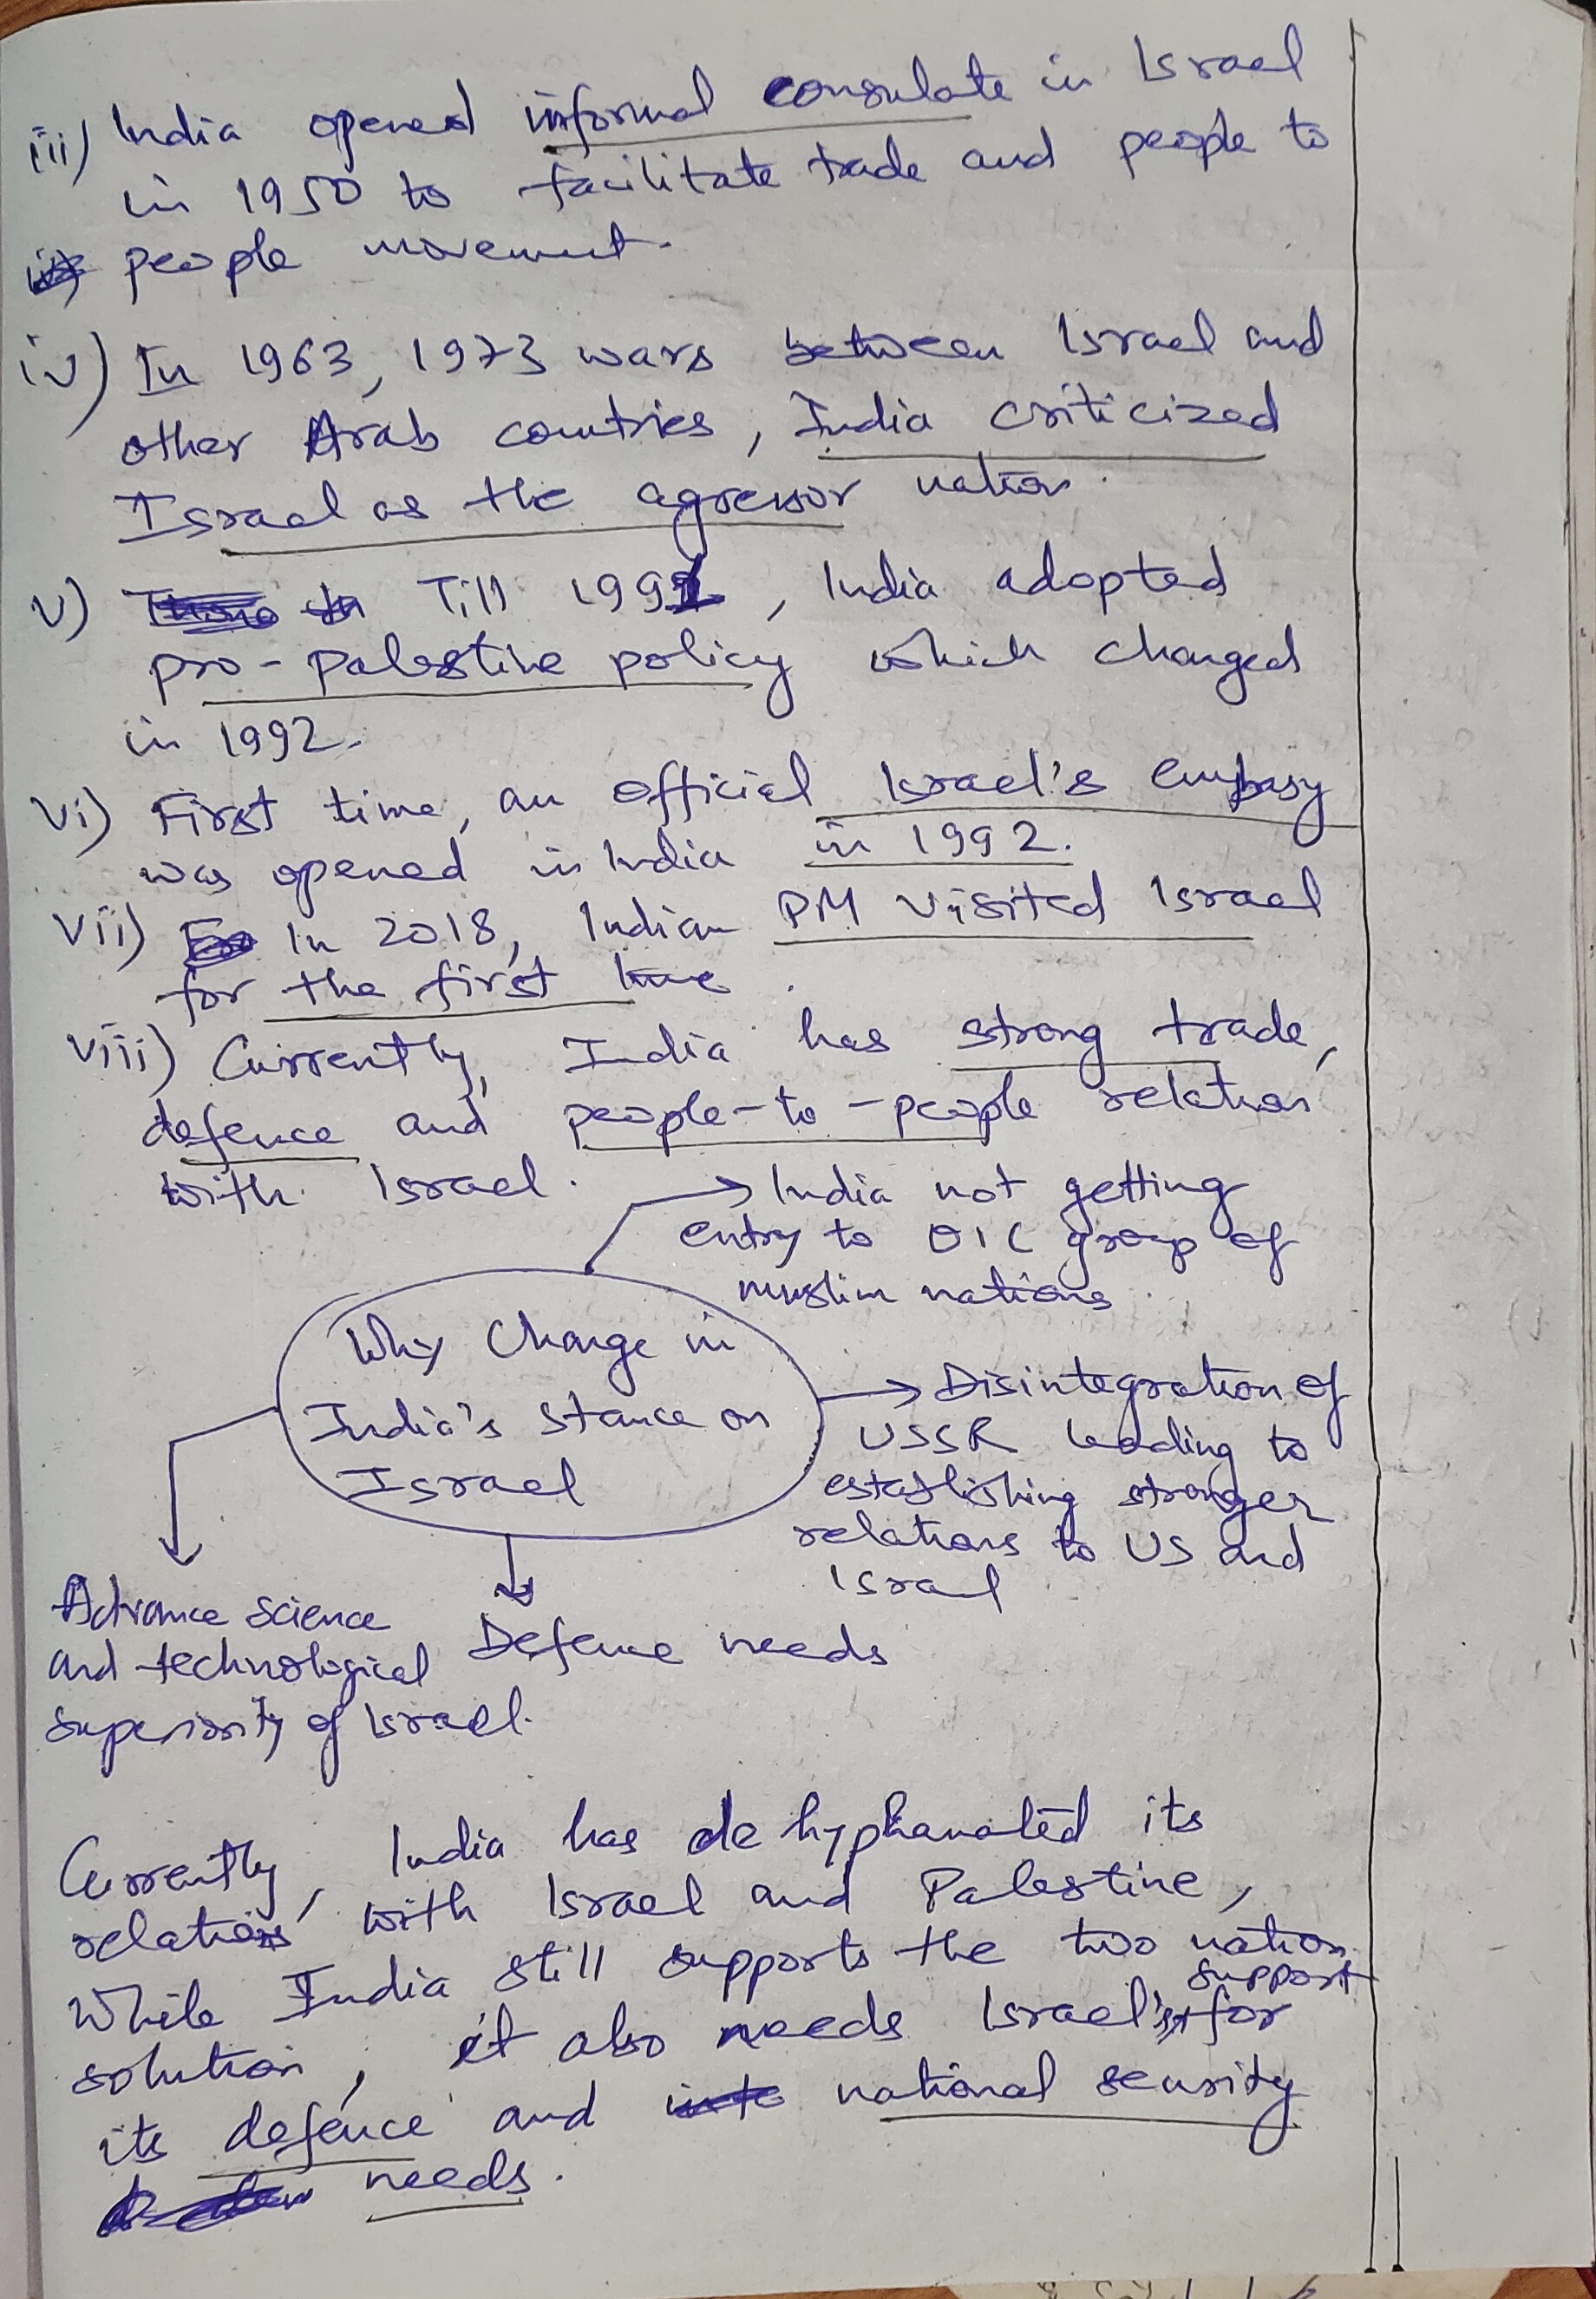 iii) India opened informal consulate in Israel
in 1950 to facilitate trade and people to
people movement.
iv) In 1963, 1973 wars between Israel and
other Arab countries, India criticized
Israel as the agressor nation.
v) Till 1991, India adopted
pro-palestine policy which changed
in 1992.
vi) First time, an official Israel's embasy
was opened in India in 1992.
vii) In 2018, Indian PM visited Israel
for the first time.
viii) Currently, India has strong trade,
defence and people-to-people relation
with Israel.
→ India not getting
entry to OIC group of
muslim nations
Why Change in
India's stance on
Israel
→ Disintegration of
USSR leading to
establishing stronger
relations to US and
Israel
Advance science
and technological
superiority of Israel.
Defence needs
Currently, India has de hyphanated its
relations with Israel and Palestine,
While India still supports the two nation
solution, it also needs Israel's support for
its defence and national security
needs.